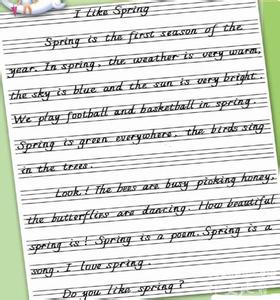 I Like Spring
Spring is the first season of the
year. In spring, the weather is very warm,
the sky is blue and the sun is very bright.
We play football and basketball in spring.
Spring is green everywhere, the birds sing
in the trees.
Look! The bees are busy picking honey,
the butterflies are dancing. How beautiful
spring is! Spring is a poem. Spring is a
song. I love spring.
Do you like spring?